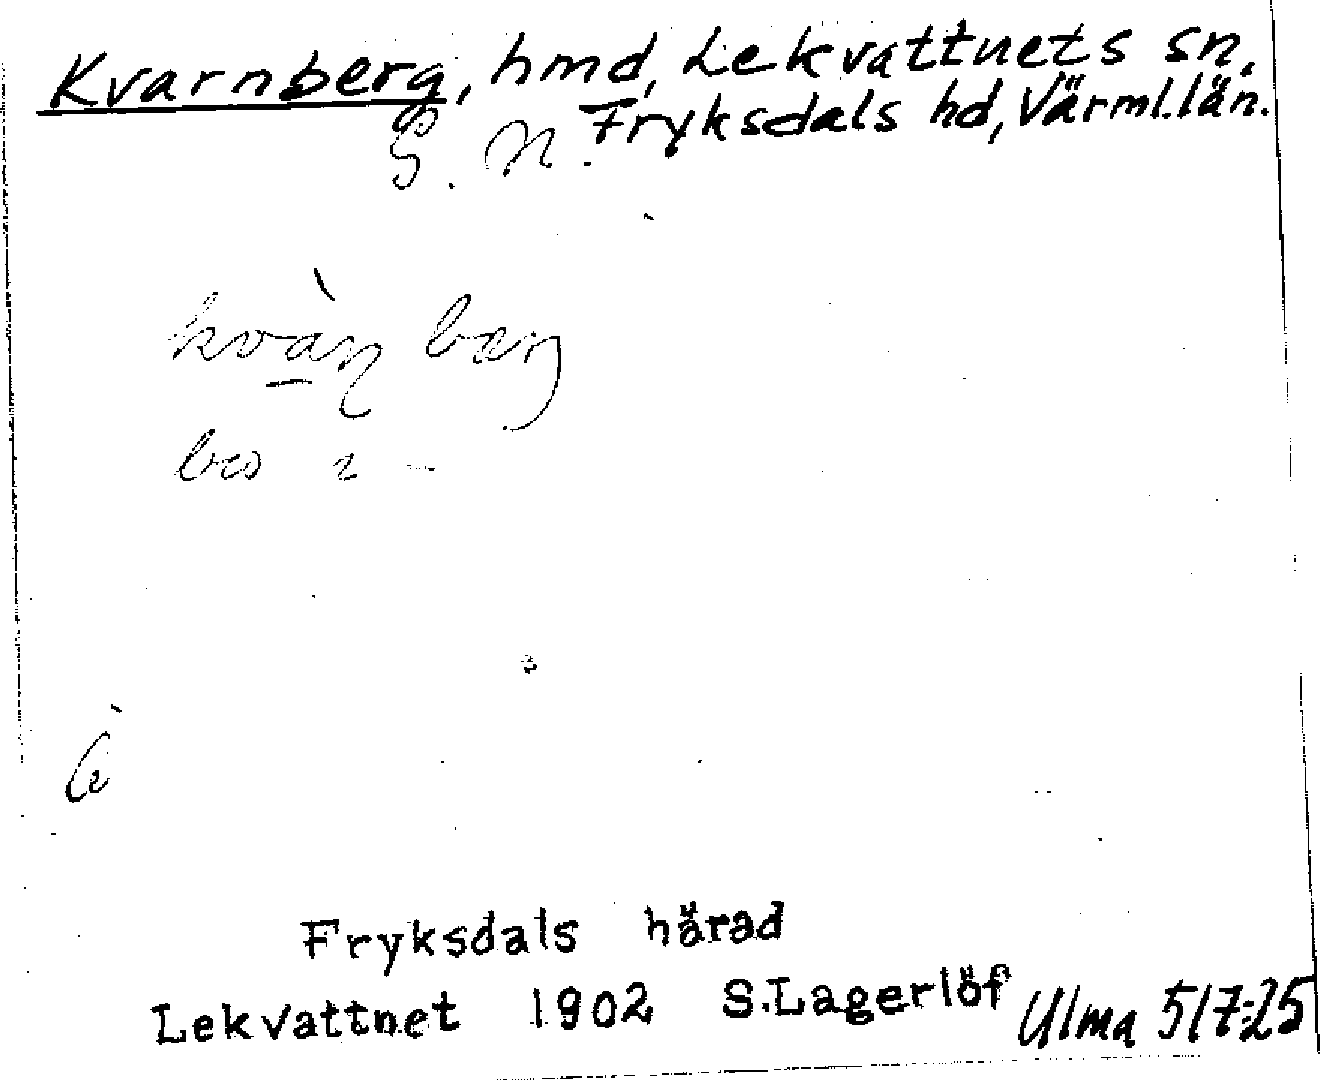 Kvarnberg, hmd, Lekvattnets sn,
Fryksdals hd, Värml. län.
S. N.
kvàɳ bærj
bes i -
Fryksdals härad
Lekvattnet 1902 S. Lagerlöf Ulma 517:25